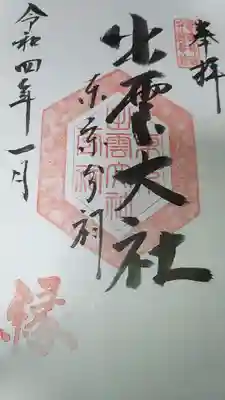 奉拝
出雲大社
東京分祠
令和四年一月
縁